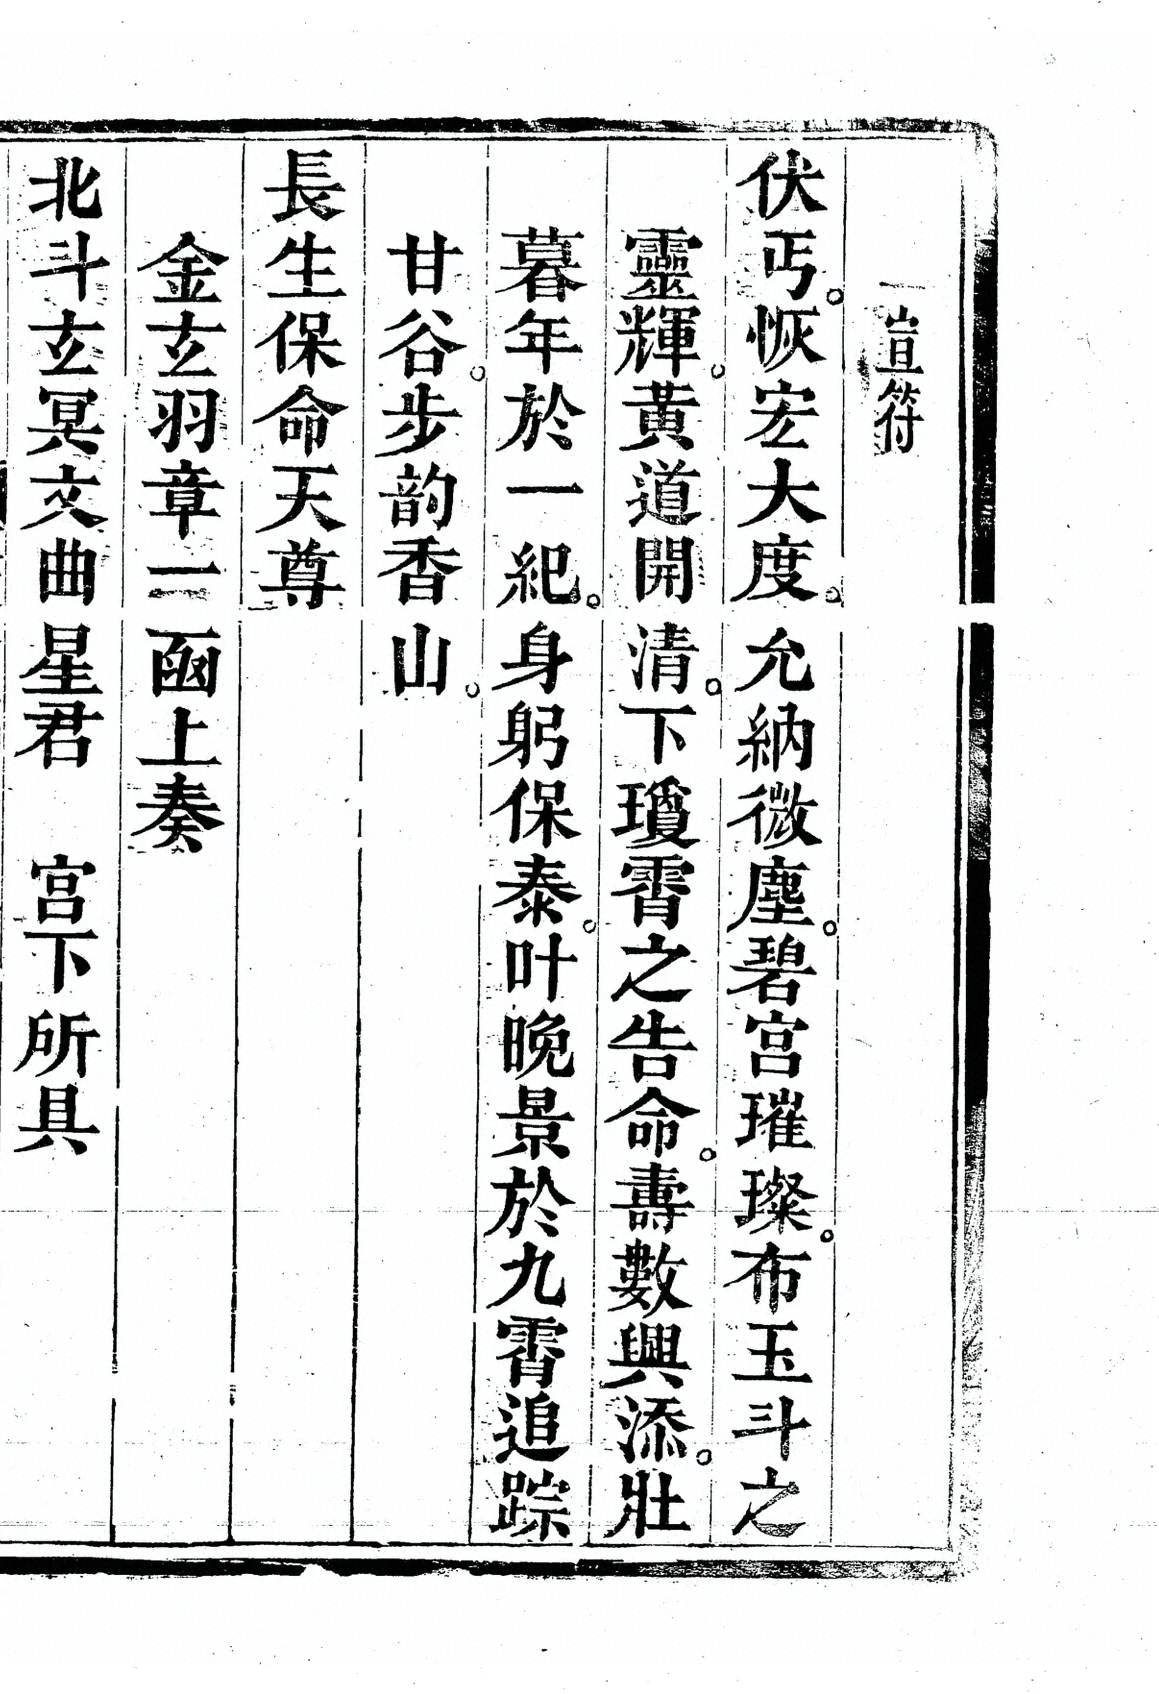 一宣符
伏丐。恢宏大度。允納微塵。碧宮璀璨。布玉斗之
靈輝。黃道開清。下瓊霄之告命。壽數興添。壯
暮年於一紀。身躬保泰。叶晚景於九霄追踪
甘谷。步韵香山。
長生保命天尊
金玄羽章一函上奏
北斗玄冥文曲星君　宮下所具